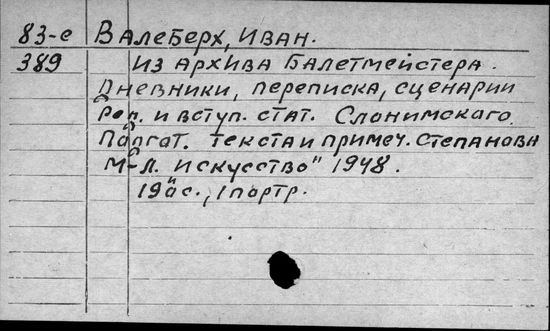 83-е Валеберх, Иван.
389 Из архива балетмейстера.
Дневники, переписка, сценарии
Ред. и вступ. стат. Слонимскаго
Подгат. текста и примеч. Степанова
М-Л. Искусство" 1948.
с., 1 портр.